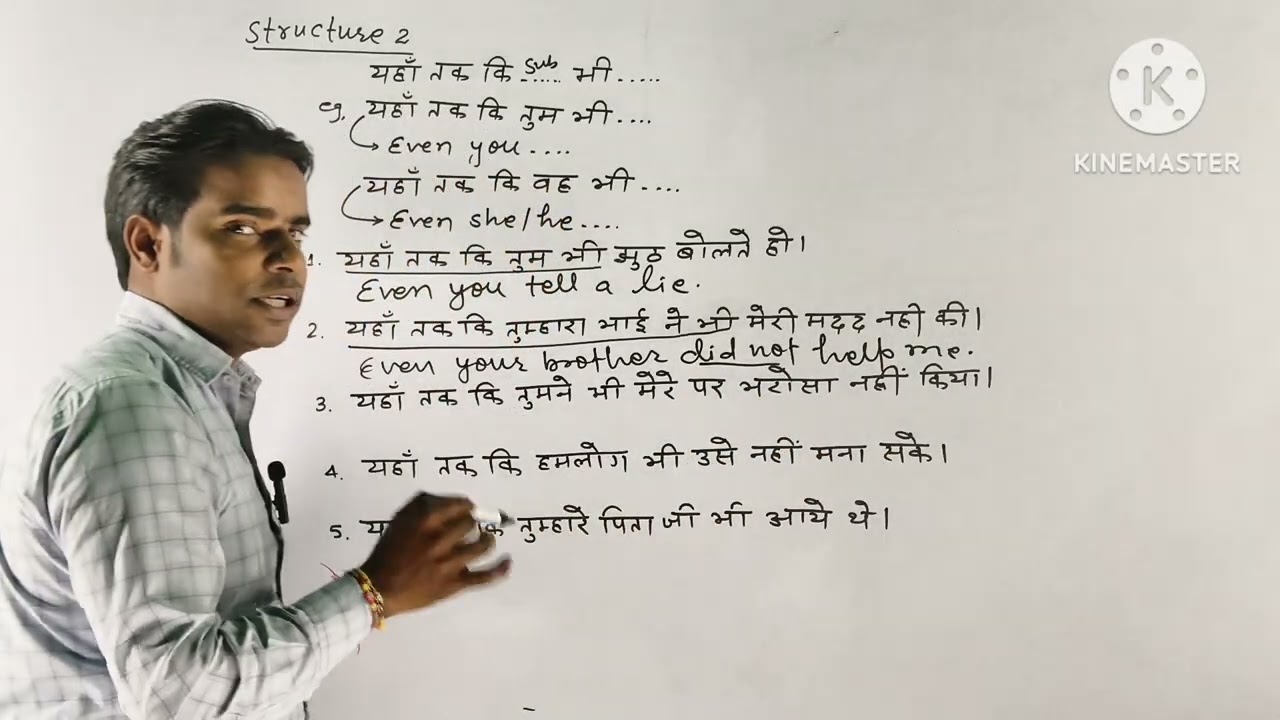 Structure 2
यहाँ तक कि ..... भी .....
sub
eg. यहाँ तक कि तुम भी....
→ Even you ....
यहाँ तक कि वह भी ....
→ Even she/he ....
1. यहाँ तक कि तुम भी झुठ बोलते हो।
Even you tell a lie.
2. यहाँ तक कि तुम्हारा भाई ने भी मेरी मदद नही की।
Even your brother did not help me.
3. यहाँ तक कि तुमने भी मेरे पर भरोसा नहीं किया।
4. यहाँ तक कि हमलोग भी उसे नहीं मना सके।
5. तुम्हारे पिता जी भी आये थे।
K
KINEMASTER